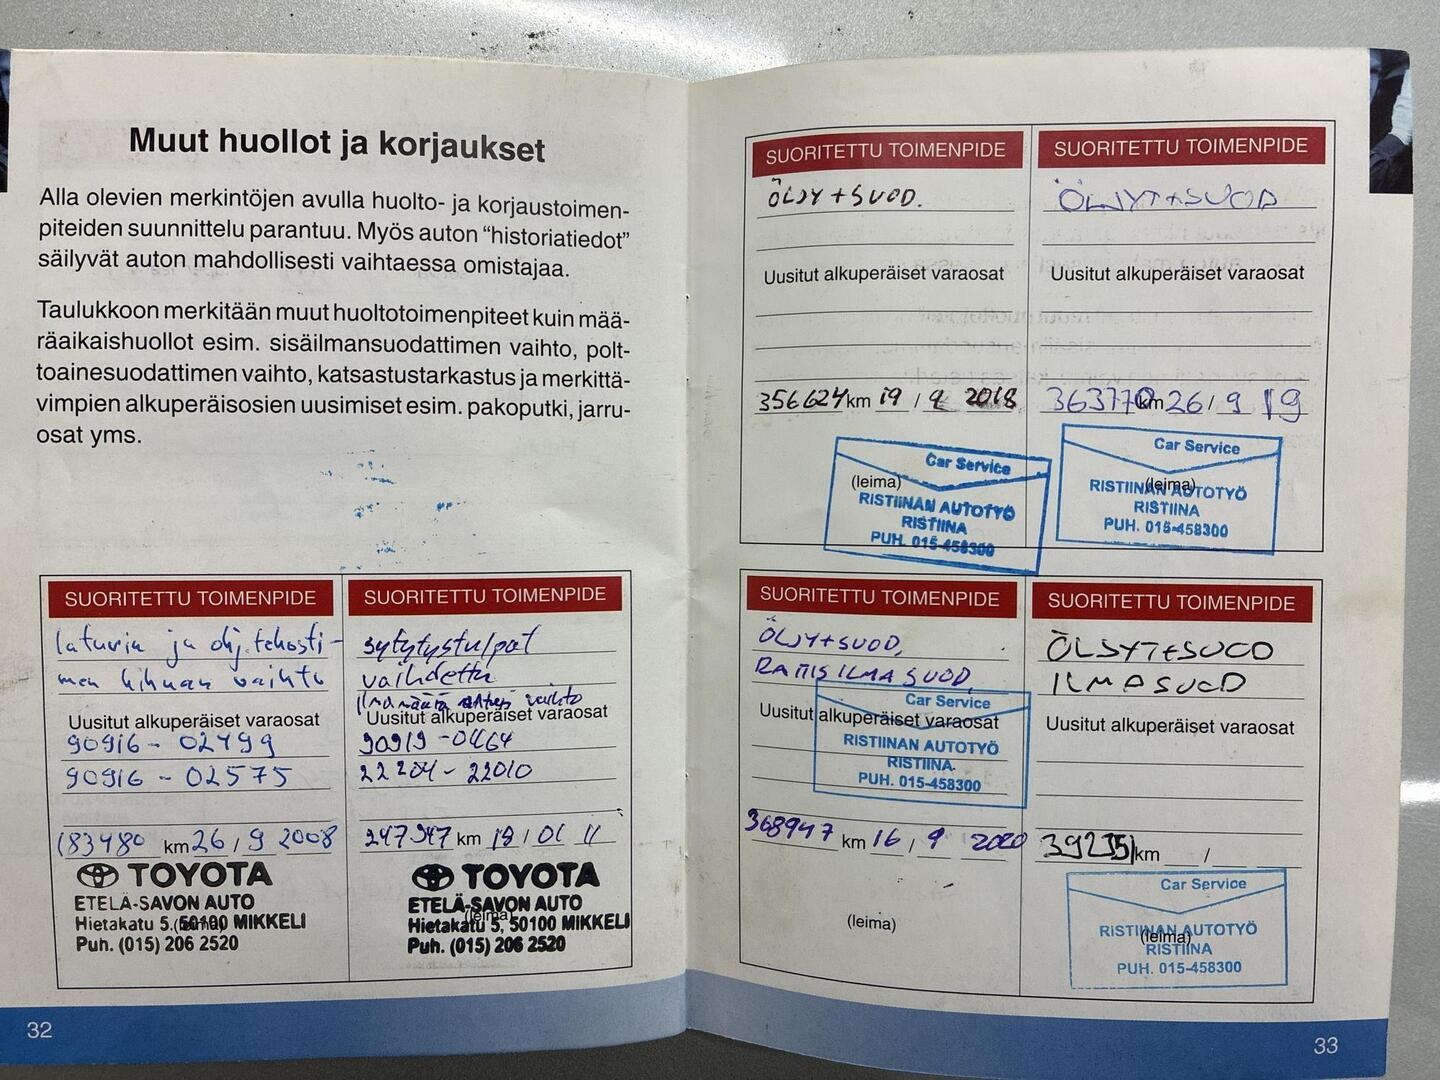 Muut huollot ja korjaukset
Alla olevien merkintöjen avulla huolto- ja korjaustoimen-
piteiden suunnittelu parantuu. Myös auton “historiatiedot”
säilyvät auton mahdollisesti vaihtaessa omistajaa.
Taulukkoon merkitään muut huoltotoimenpiteet kuin mää-
räaikaishuollot esim. sisäilmansuodattimen vaihto, polt-
toainesuodattimen vaihto, katsastustarkastus ja merkittä-
vimpien alkuperäisosien uusimiset esim. pakoputki, jarru-
osat yms.
SUORITETTU TOIMENPIDE
laturin ja ohj.tehosti-
men hihnan vaihto
Uusitut alkuperäiset varaosat
90916-02499
90916-02575
183480 km 26/9 2008
TOYOTA
ETELÄ-SAVON AUTO
Hietakatu 5, 50100 MIKKELI
(leima)
Puh. (015) 206 2520
SUORITETTU TOIMENPIDE
sytytystulpat
vaihdettu
vaihto
Uusitut alkuperäiset varaosat
22204-22010
247947 km 18/01 11
TOYOTA
ETELÄ-SAVON AUTO
(leima)
Hietakatu 5, 50100 MIKKELI
Puh. (015) 206 2520
32
SUORITETTU TOIMENPIDE
ÖLJY+SUOD.
Uusitut alkuperäiset varaosat
356624 km 19/9 2018
Car Service
(leima)
RISTIINAN AUTOTYÖ
RISTIINA
PUH. 015-458300
SUORITETTU TOIMENPIDE
ÖLJYT+SUOD
Uusitut alkuperäiset varaosat
363770 km 26/9 19
Car Service
(leima)
RISTIINAN AUTOTYÖ
RISTIINA
PUH. 015-458300
SUORITETTU TOIMENPIDE
ÖLJYT+SUOD,
RAITIS ILMASUOD,
Car Service
Uusitut alkuperäiset varaosat
RISTIINAN AUTOTYÖ
RISTIINA
PUH. 015-458300
368947 km 16/9 2020
(leima)
SUORITETTU TOIMENPIDE
ÖLJYT+SUOD
ILMASUOD
Uusitut alkuperäiset varaosat
km /
Car Service
RISTIINAN AUTOTYÖ
(leima)
RISTIINA
PUH. 015-458300
33